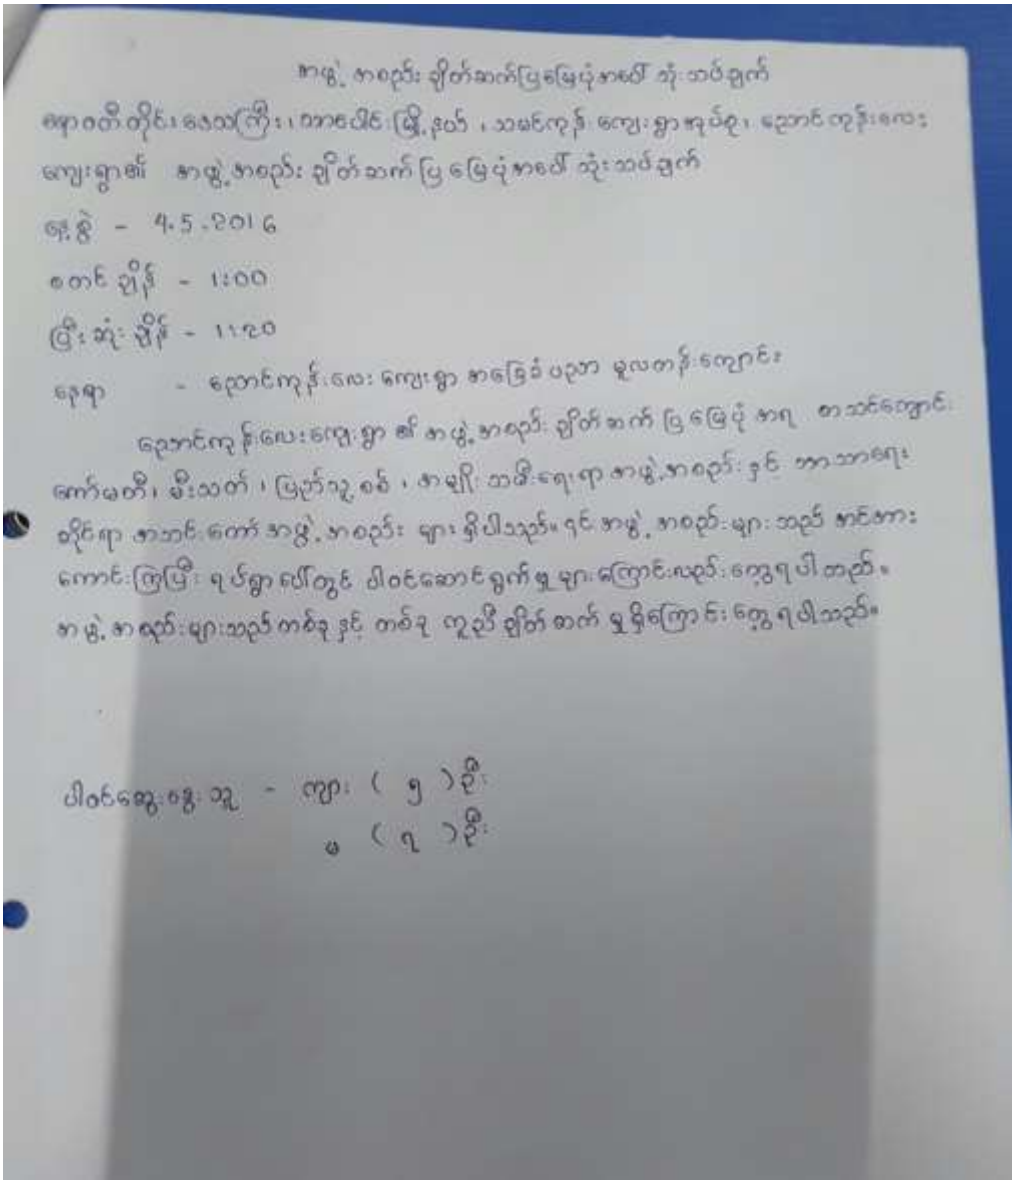 အဖွဲ့ အစည်း ချိတ်ဆက်ပြမြေပုံအပေါ် သုံးသပ်ချက်
ဧရာဝတီတိုင်းဒေသကြီး၊ သာပေါင်းမြို့နယ်၊ သမင်ကုန်းကျေးရွာအုပ်စု၊ ညောင်ကုန်းလေး
ကျေးရွာ၏ အဖွဲ့အစည်း ချိတ်ဆက်ပြ မြေပုံအပေါ် သုံးသပ်ချက်
နေ့စွဲ - 4.5.2016
စတင်ချိန် - 1:00
ပြီးဆုံးချိန် - 1:20
နေရာ - ညောင်ကုန်းလေး ကျေးရွာ အခြေခံပညာ မူလတန်းကျောင်း
ညောင်ကုန်းလေးကျေးရွာ ၏ အဖွဲ့အစည်း ချိတ်ဆက် ပြ မြေပုံ အရ စာသင်ကျောင်း
ကော်မတီ၊ မီးသတ်၊ ပြည်သူ့စစ်၊ အမျိုးသမီးရေးရာ အဖွဲ့အစည်း နှင့် ဘာသာရေး
ဆိုင်ရာ အသင်းတော် အဖွဲ့အစည်း များ ရှိပါသည်။ ၎င်းအဖွဲ့ အစည်းများသည် အင်အား
ကောင်းကြပြီး ရပ်ရွာပေါ်တွင် ပါဝင်ဆောင်ရွက်မှုများကြောင်းလည်း တွေ့ရပါတည်။
အဖွဲ့အစည်းများသည်တစ်ခုနှင့် တစ်ခု ကူညီချိတ်ဆက် မှု ရှိကြောင်း တွေ့ရပါသည်။
ပါဝင်ဆွေးနွေးသူ - ကျား ( ၅ )ဦး
မ ( ၇ )ဦး